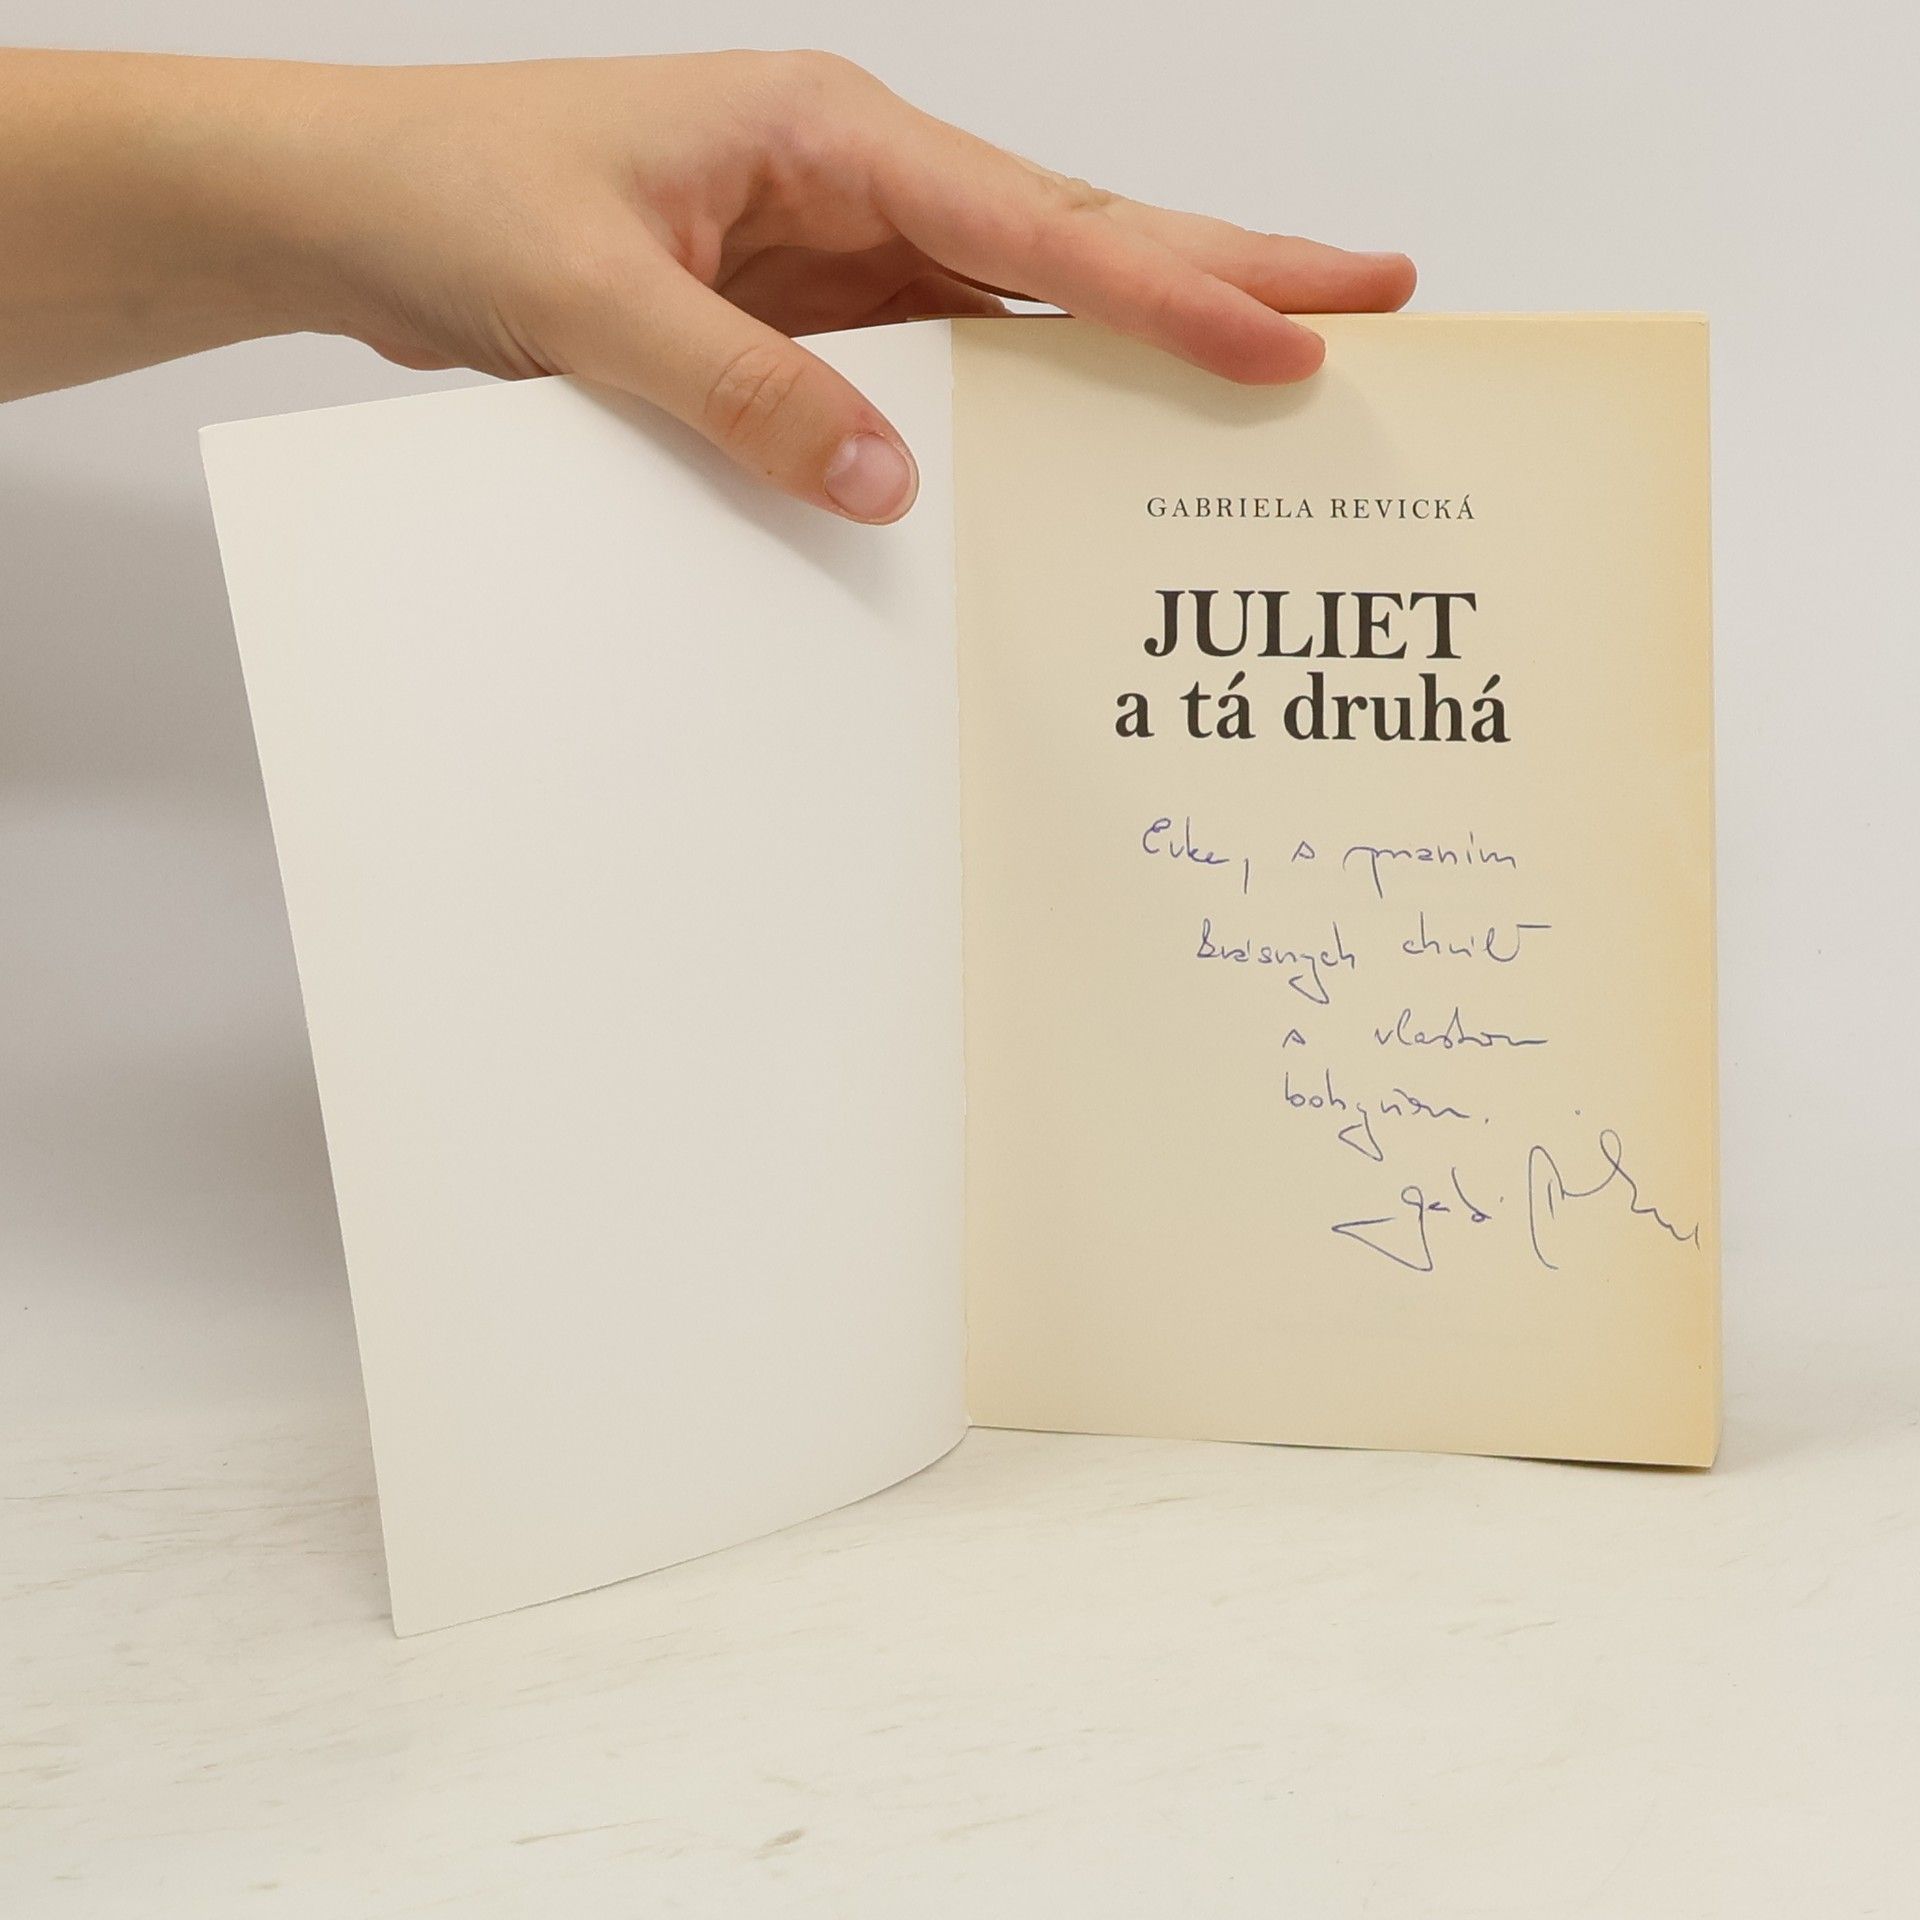 GABRIELA REVICKÁ
JULIET
a tá druhá
Evke, s praním
krásnych chvíľ
s vlastnou
bohyňou.
Gabi